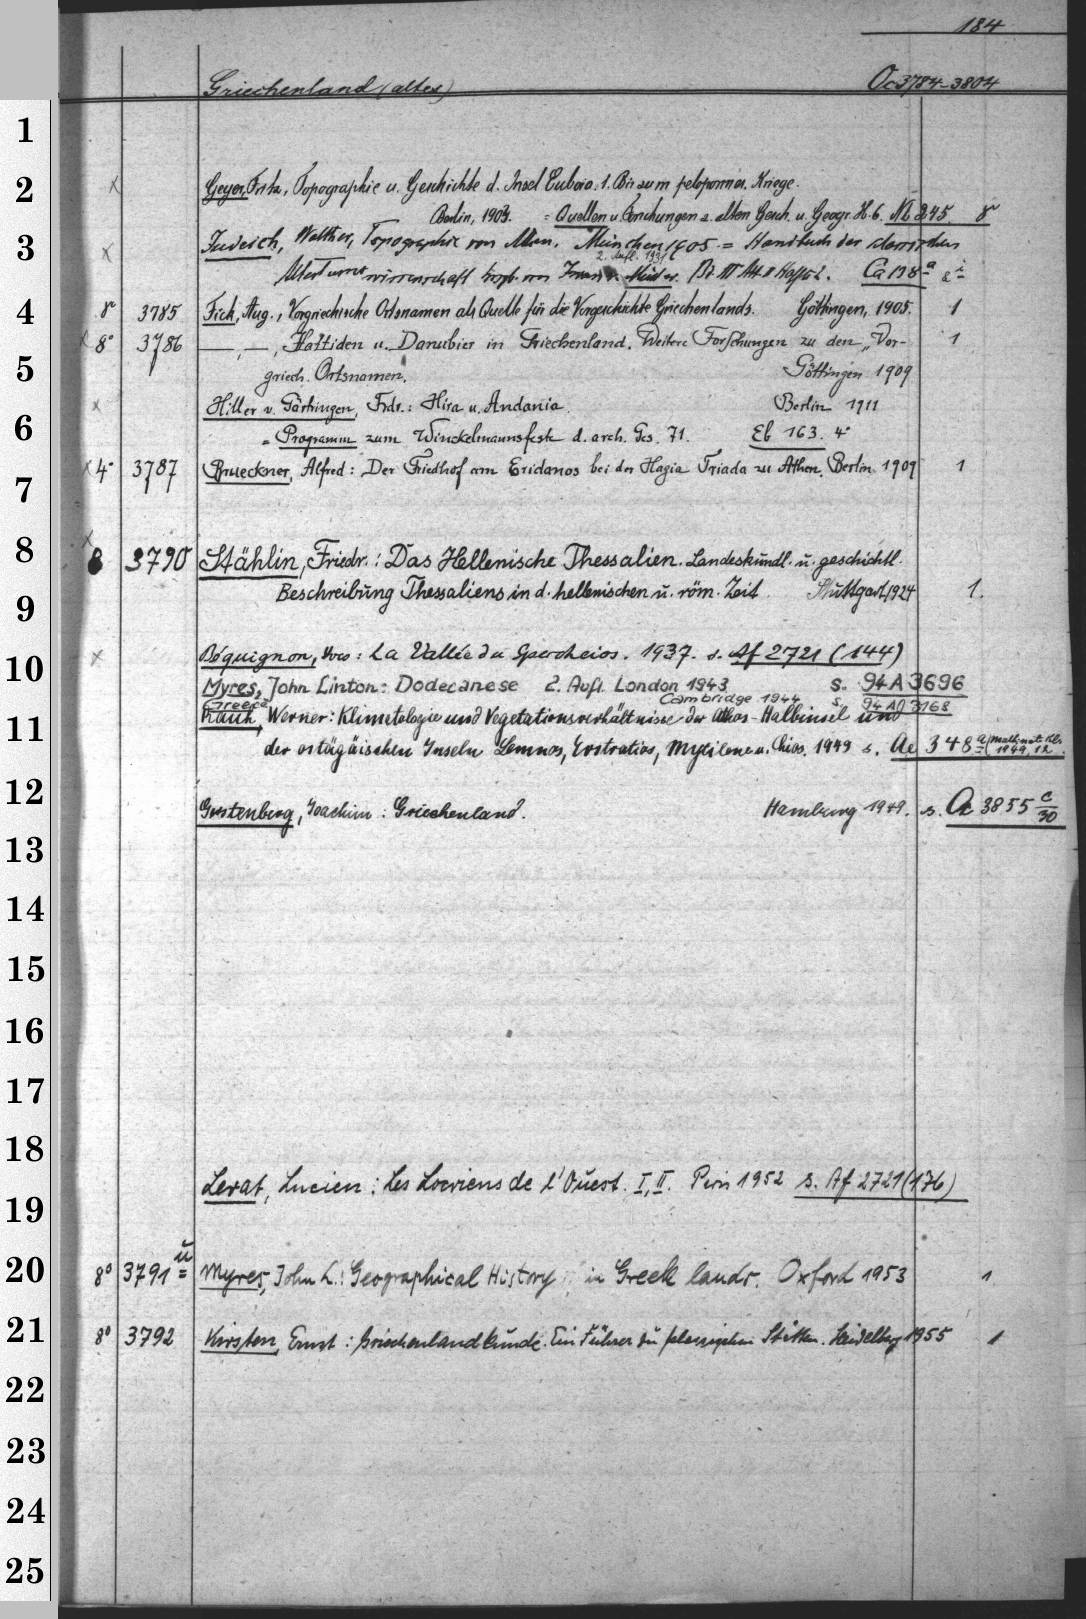 184
Griechenland (altes) Oc 3784-3804
1
2 x Geyer, Fritz, Topographie u. Geschichte d. Insel Euboia. 1. Bis zum peloponnes. Kriege.
Berlin, 1903. = Quellen u. Forschungen z. alten Gesch. u. Geogr. H. 6. 8°
3 x Judeich, Walther, Topographie von Athen. München 1905 = Handbuch der classischen
2. Aufl. 1931
Altertumswissenschaft hrgb. von Iwan v. Müller. Bd III Abt II Hälfte 2. Ca 128 a
4 8° 3785 Fick, Aug., Vorgriechische Ortsnamen als Quelle für die Vorgeschichte Griechenlands. Göttingen, 1905. 1
x 8° 3786 —, —, Hattiden u. Danubier in Griechenland. Weitere Forschungen zu den „Vor- 1
5 griech. Ortsnamen. Göttingen 1909
x Hiller v. Gärtringen, Frdr.: Hira u. Andania. Berlin 1911
6 = Programm zum Winckelmannsfeste d. arch. Ges. 71. Eb 163. 4°
x 4° 3787 Brueckner, Alfred: Der Friedhof am Eridanos bei der Hagia Triada zu Athen. Berlin 1909 1
7
x
8 8 3790 Stählin, Friedr.: Das Hellenische Thessalien. Landeskundl. u. geschichtl.
9 Beschreibung Thessaliens in d. hellenischen u. röm. Zeit. Stuttgart 1924 1.
10 x Béquignon, Yves: La Vallée du Spercheios. 1937. s. Af 2721 (144)
Myres, John Linton: Dodecanese 2. Aufl. London 1943 s. 94 A 3696
Greece Cambridge 1944 s. 94 A 3168
11 Rauh, Werner: Klimatologie und Vegetationsverhältnisse der Athos-Halbinsel und
der ostägäischen Inseln Lemnos, Evstratios, Mytilene u. Chios. 1949 s. Ae 348 a (math.nat. Kl. 1949, 12.
12 Gerstenberg, Joachim: Griechenland. Hamburg 1949. s. Oc 3855 c/30
13
14
15
16
17
18
19 Lerat, Lucien: Les Locriens de l'Ouest. I, II. Paris 1952 s. Af 2721 (176)
20 8° 3791 ü Myres, John L.: Geographical History in Greek lands. Oxford 1953 1
21 8° 3792 Kirsten, Ernst: Griechenlandkunde. Ein Führer zu klassischen Stätten. Heidelberg 1955 1
22
23
24
25